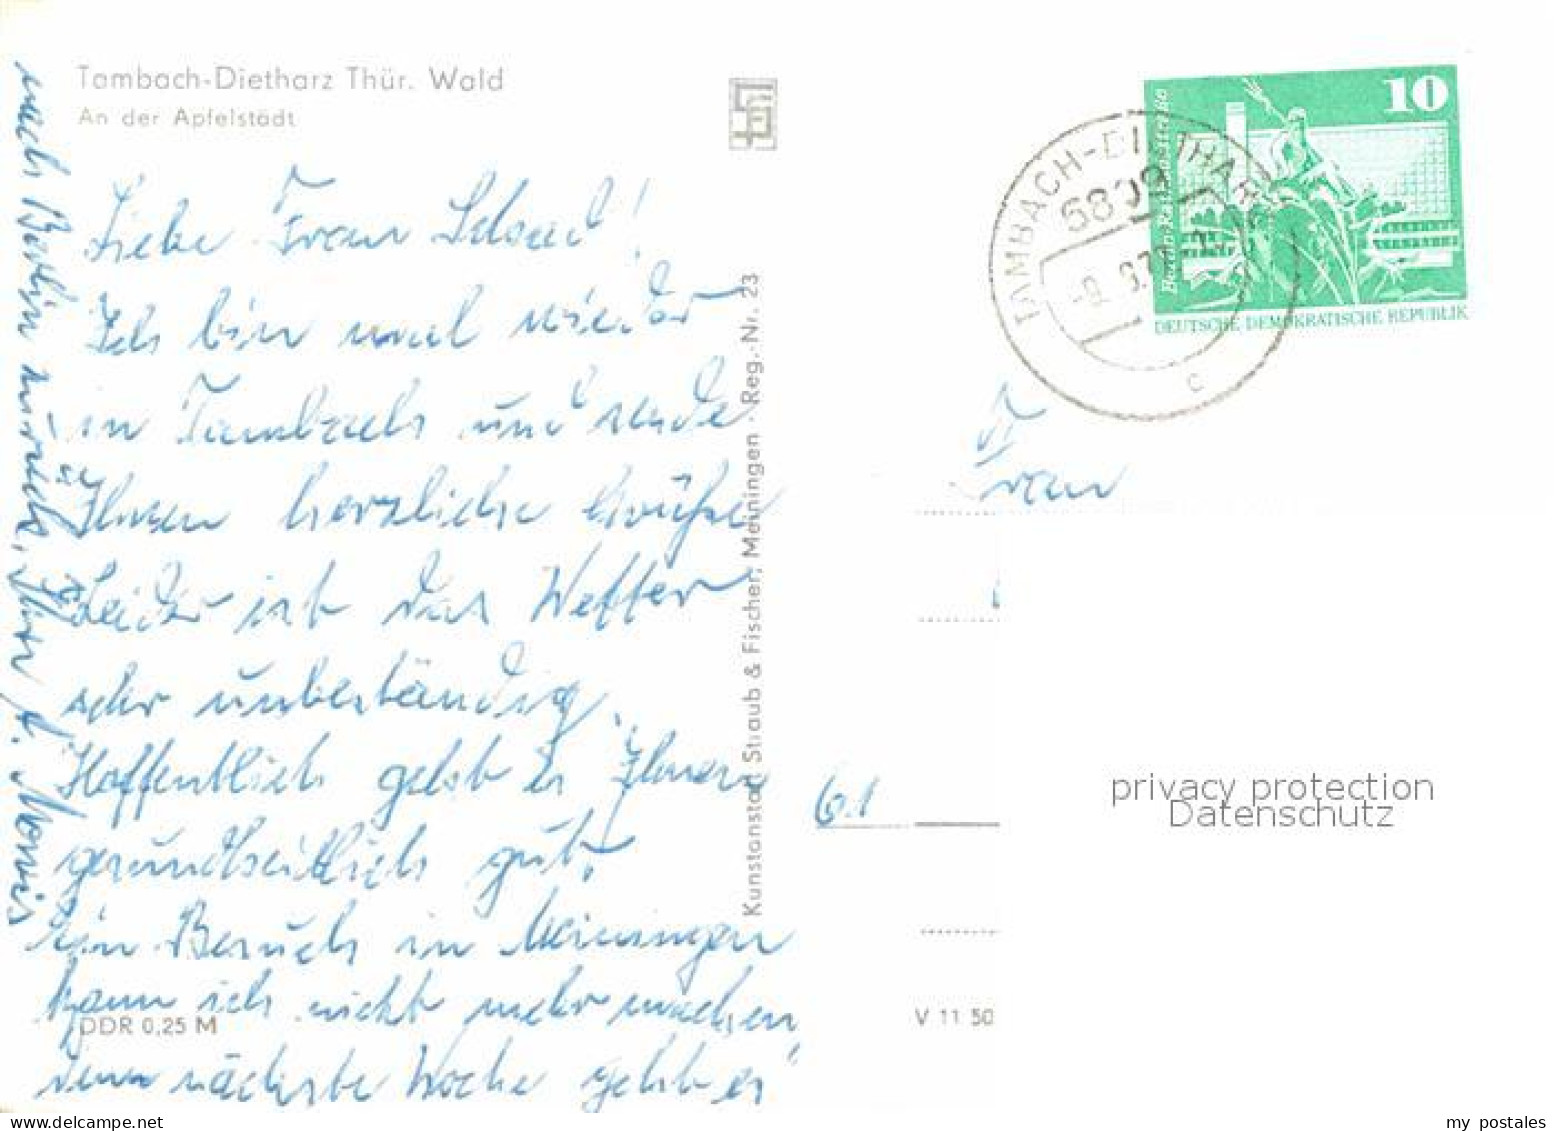 Tambach-Dietharz Thür. Wald
An der Apfelstädt
Liebe Frau
Ich bin mal wieder
in Tambach und sende
Ihnen herzliche Grüße
Leider ist das Wetter
sehr unbeständig.
Hoffentlich geht es Ihnen
gesundheitlich gut.
Ein Besuch in Meiningen
kann ich nicht mehr machen,
denn nächste Woche geht es
nach Berlin zurück, Ihr
DDR 0,25 M
Kunstanstalt Straub & Fischer, Meiningen · Reg.-Nr. 23
TAMBACH-DIETHARZ
5809
c
10
DEUTSCHE DEMOKRATISCHE REPUBLIK
Frau
61
V 11 50
privacy protection
Datenschutz
my postales